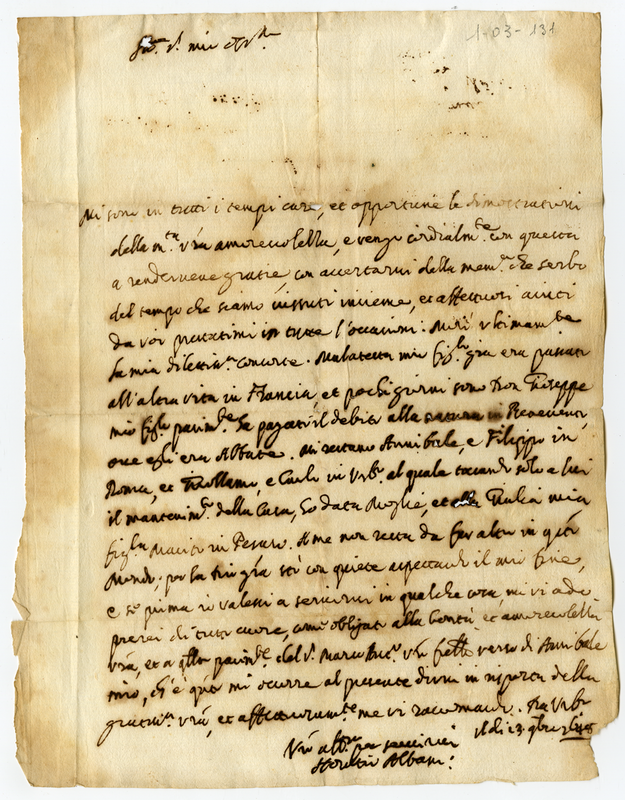 1-03-131
Mi sono in tutti i tempi care, et opportune le dimostrationi
della m.ta v̄ra amorevolezza, e vengo cordialm.te con questa
a rendervene gratie, con accertarvi della mem.a che serbo
del tempo che siamo vissuti insieme, et affettuosi
da voi prestatimi in tutte l'occasioni. Morì ultimam.te
la mia dilettiss.a consorte. Malatesta mio fig.lo già era passato
all'altra vita in Francia, et pochi giorni sono Don Gioseppe
mio fig.lo parim.te ha pagato il debito alla natura in Benevento,
ove egli era Abbate. Mi restano Annibale, e Filippo in
Roma, et e Carlo in Urb.o al quale toccando solo a lui
il mantenim.to della Casa, ho data Moglie, et alla Giulia mia
fig.la Marito in Pesaro. A me non resta da far altro in q̄sto
Mondo, per la Dio grã stò con quiete aspettando il mio fine,
e se prima io valessi a servirvi in qualche cosa, mi vi ado-
prerei di tutto cuore, come obligato alla bontà, et amorevolezza
v̄ra, et a q̄lla parim.te del S.r Marc'Ant.o v̄ro fr̄ello verso di Annibale
mio, ch'è q̄to mi occorre al presente dirvi in risposta della
gratiss.a v̄ra, et affettuosam.te me vi racomando. Da Urb.o
il dì 23
V̄ro aff.mo per servirvi
Horatio Albani.